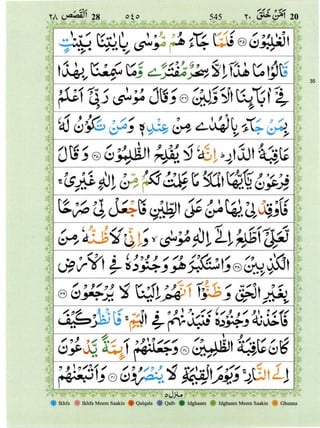 ٢٨ القصص 28 ٥٤٥ 545 ٢٠ امّن خلق 20
الْغٰلِبُوْنَ ﴿۳۵﴾ فَلَمَّا جَآءَهُمْ مُّوْسٰی بِاٰیٰتِنَا بَیِّنٰتٍ
قَالُوْا مَا هٰذَاۤ اِلَّا سِحْرٌ مُّفْتَرًی وَّمَا سَمِعْنَا بِهٰذَا
فِیْۤ اٰبَآىِٕنَا الْاَوَّلِیْنَ ﴿۳۶﴾ وَقَالَ مُوْسٰی رَبِّیْۤ اَعْلَمُ
بِمَنْ جَآءَ بِالْهُدٰی مِنْ عِنْدِهٖ وَمَنْ تَكُوْنُ لَهٗ
عَاقِبَةُ الدَّارِ ؕ اِنَّهٗ لَا یُفْلِحُ الظّٰلِمُوْنَ ﴿۳۷﴾ وَقَالَ
فِرْعَوْنُ یٰۤاَیُّهَا الْمَلَاُ مَا عَلِمْتُ لَكُمْ مِّنْ اِلٰهٍ غَیْرِیْ ۚ
فَاَوْقِدْ لِیْ یٰهَامٰنُ عَلَی الطِّیْنِ فَاجْعَلْ لِّیْ صَرْحًا
لَّعَلِّیْۤ اَطَّلِعُ اِلٰۤی اِلٰهِ مُوْسٰی ۙ وَاِنِّیْ لَاَظُنُّهٗ مِنَ
الْكٰذِبِیْنَ ﴿۳۸﴾ وَاسْتَكْبَرَ هُوَ وَجُنُوْدُهٗ فِی الْاَرْضِ
بِغَیْرِ الْحَقِّ وَظَنُّوْۤا اَنَّهُمْ اِلَیْنَا لَا یُرْجَعُوْنَ ﴿۳۹﴾
فَاَخَذْنٰهُ وَجُنُوْدَهٗ فَنَبَذْنٰهُمْ فِی الْیَمِّ ۚ فَانْظُرْ كَیْفَ
كَانَ عَاقِبَةُ الظّٰلِمِیْنَ ﴿۴۰﴾ وَجَعَلْنٰهُمْ اَىِٕمَّةً یَّدْعُوْنَ
اِلَی النَّارِ ۚ وَیَوْمَ الْقِیٰمَةِ لَا یُنْصَرُوْنَ ﴿۴۱﴾ وَاَتْبَعْنٰهُمْ
منزل ٥
Ikhfa Ikhfa Meem Saakin Qalqala Qalb Idghaam Idghaam Meem Saakin Ghunna
35